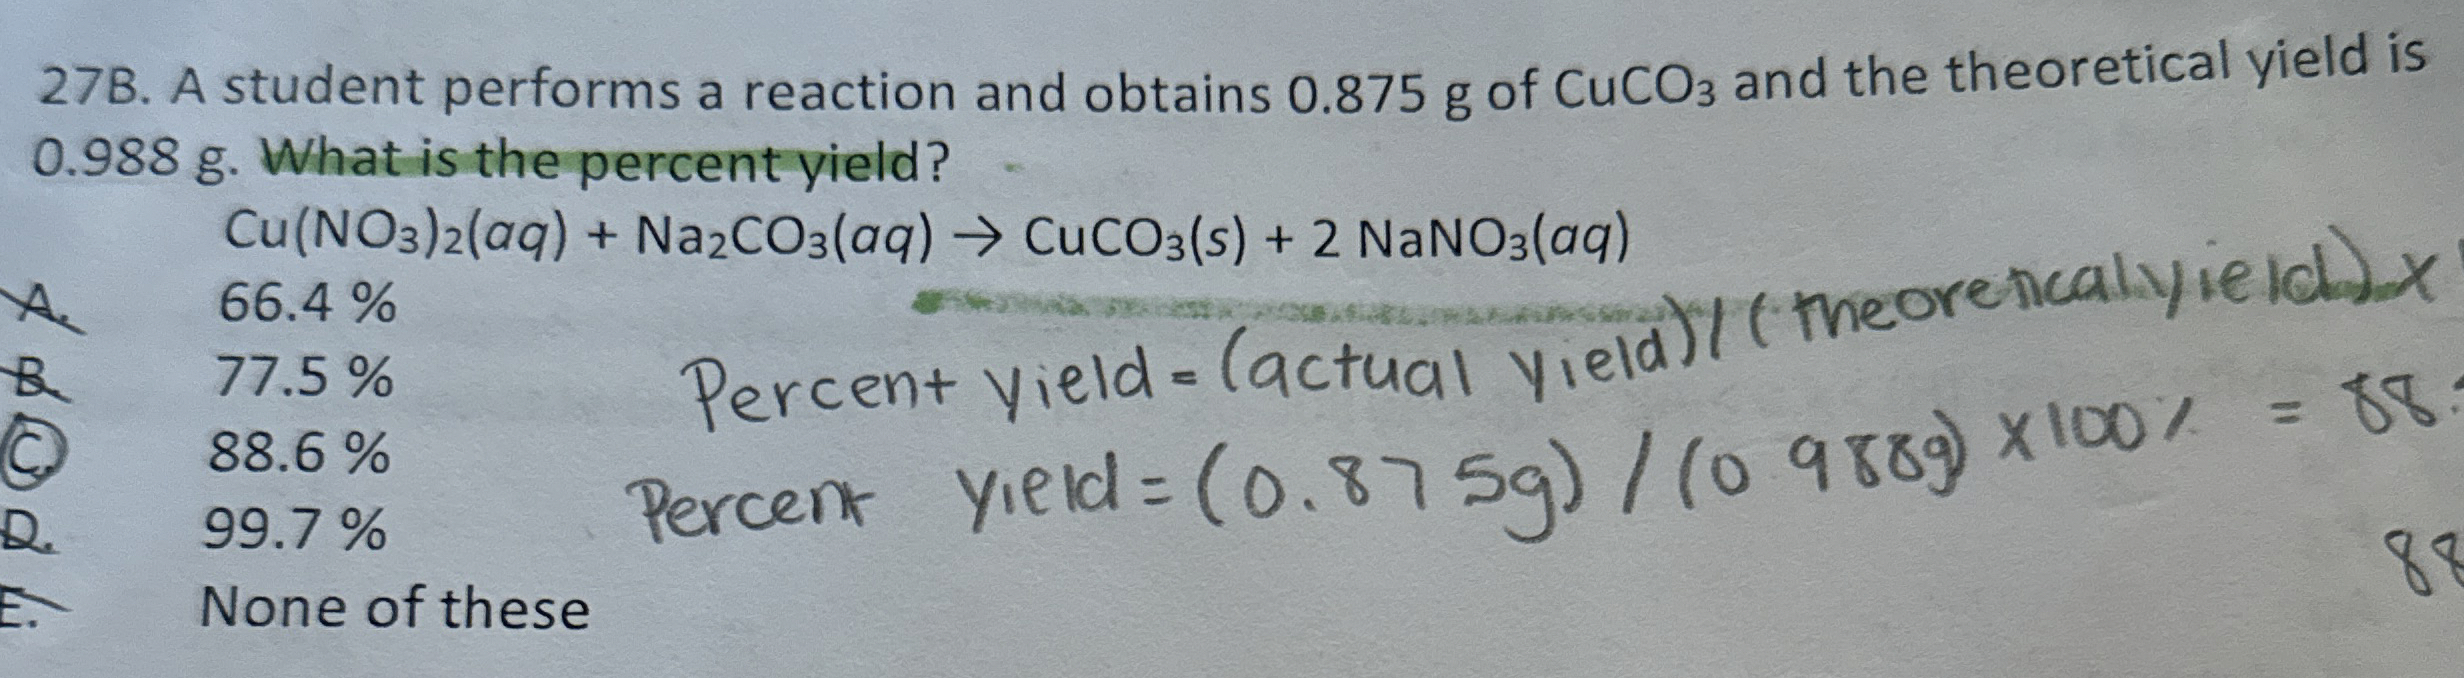 27B. A student performs a reaction and obtains 0.875 g of CuCO₃ and the theoretical yield is
0.988 g. What is the percent yield?
Cu(NO₃)₂(aq) + Na₂CO₃(aq) → CuCO₃(s) + 2 NaNO₃(aq)
A. 66.4 %
B. 77.5 %
C. 88.6 %
D. 99.7 %
E. None of these
Percent yield = (actual yield) / (theoretical yield) x
Percent yield = (0.875g) / (0.988g) x 100 % = 88.
88